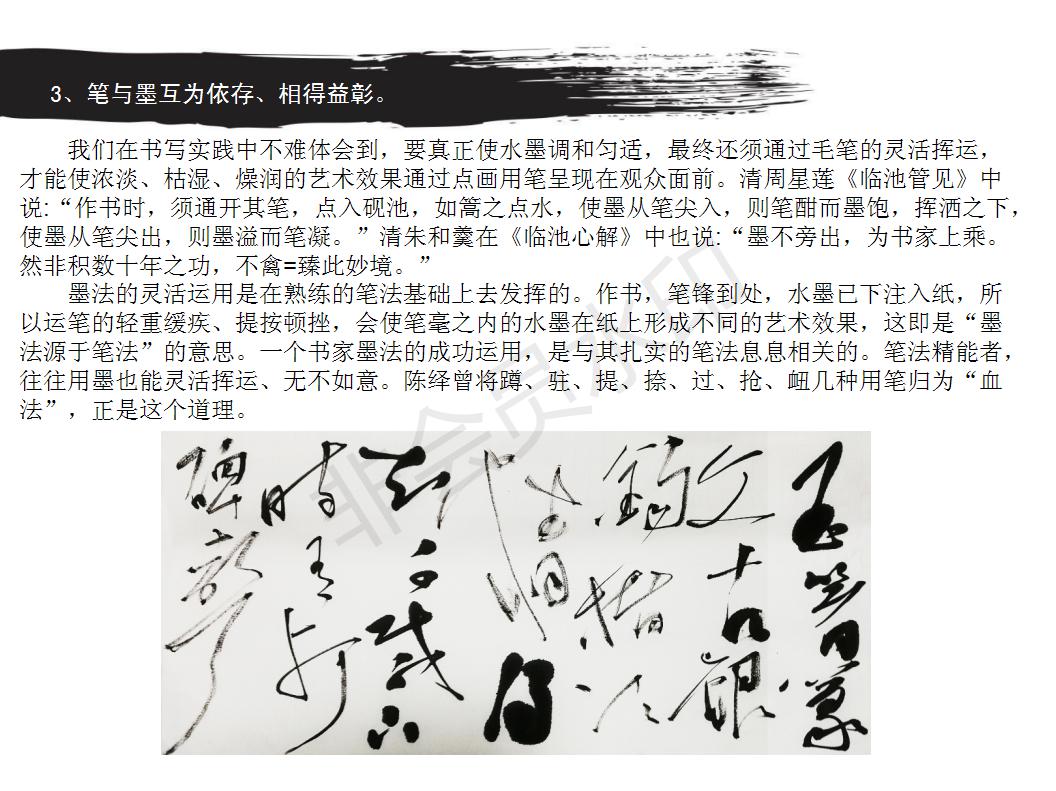 3、笔与墨互为依存、相得益彰。
我们在书写实践中不难体会到，要真正使水墨调和匀适，最终还须通过毛笔的灵活挥运，
才能使浓淡、枯湿、燥润的艺术效果通过点画用笔呈现在观众面前。清周星莲《临池管见》中
说:“作书时，须通开其笔，点入砚池，如篙之点水，使墨从笔尖入，则笔酣而墨饱，挥洒之下，
使墨从笔尖出，则墨溢而笔凝。”清朱和羹在《临池心解》中也说:“墨不旁出，为书家上乘。
然非积数十年之功，不禽=臻此妙境。”
墨法的灵活运用是在熟练的笔法基础上去发挥的。作书，笔锋到处，水墨已下注入纸，所
以运笔的轻重缓疾、提按顿挫，会使笔毫之内的水墨在纸上形成不同的艺术效果，这即是“墨
法源于笔法”的意思。一个书家墨法的成功运用，是与其扎实的笔法息息相关的。笔法精能者，
往往用墨也能灵活挥运、无不如意。陈绎曾将蹲、驻、提、捺、过、抢、衄几种用笔归为“血
法”，正是这个道理。
非会员水印